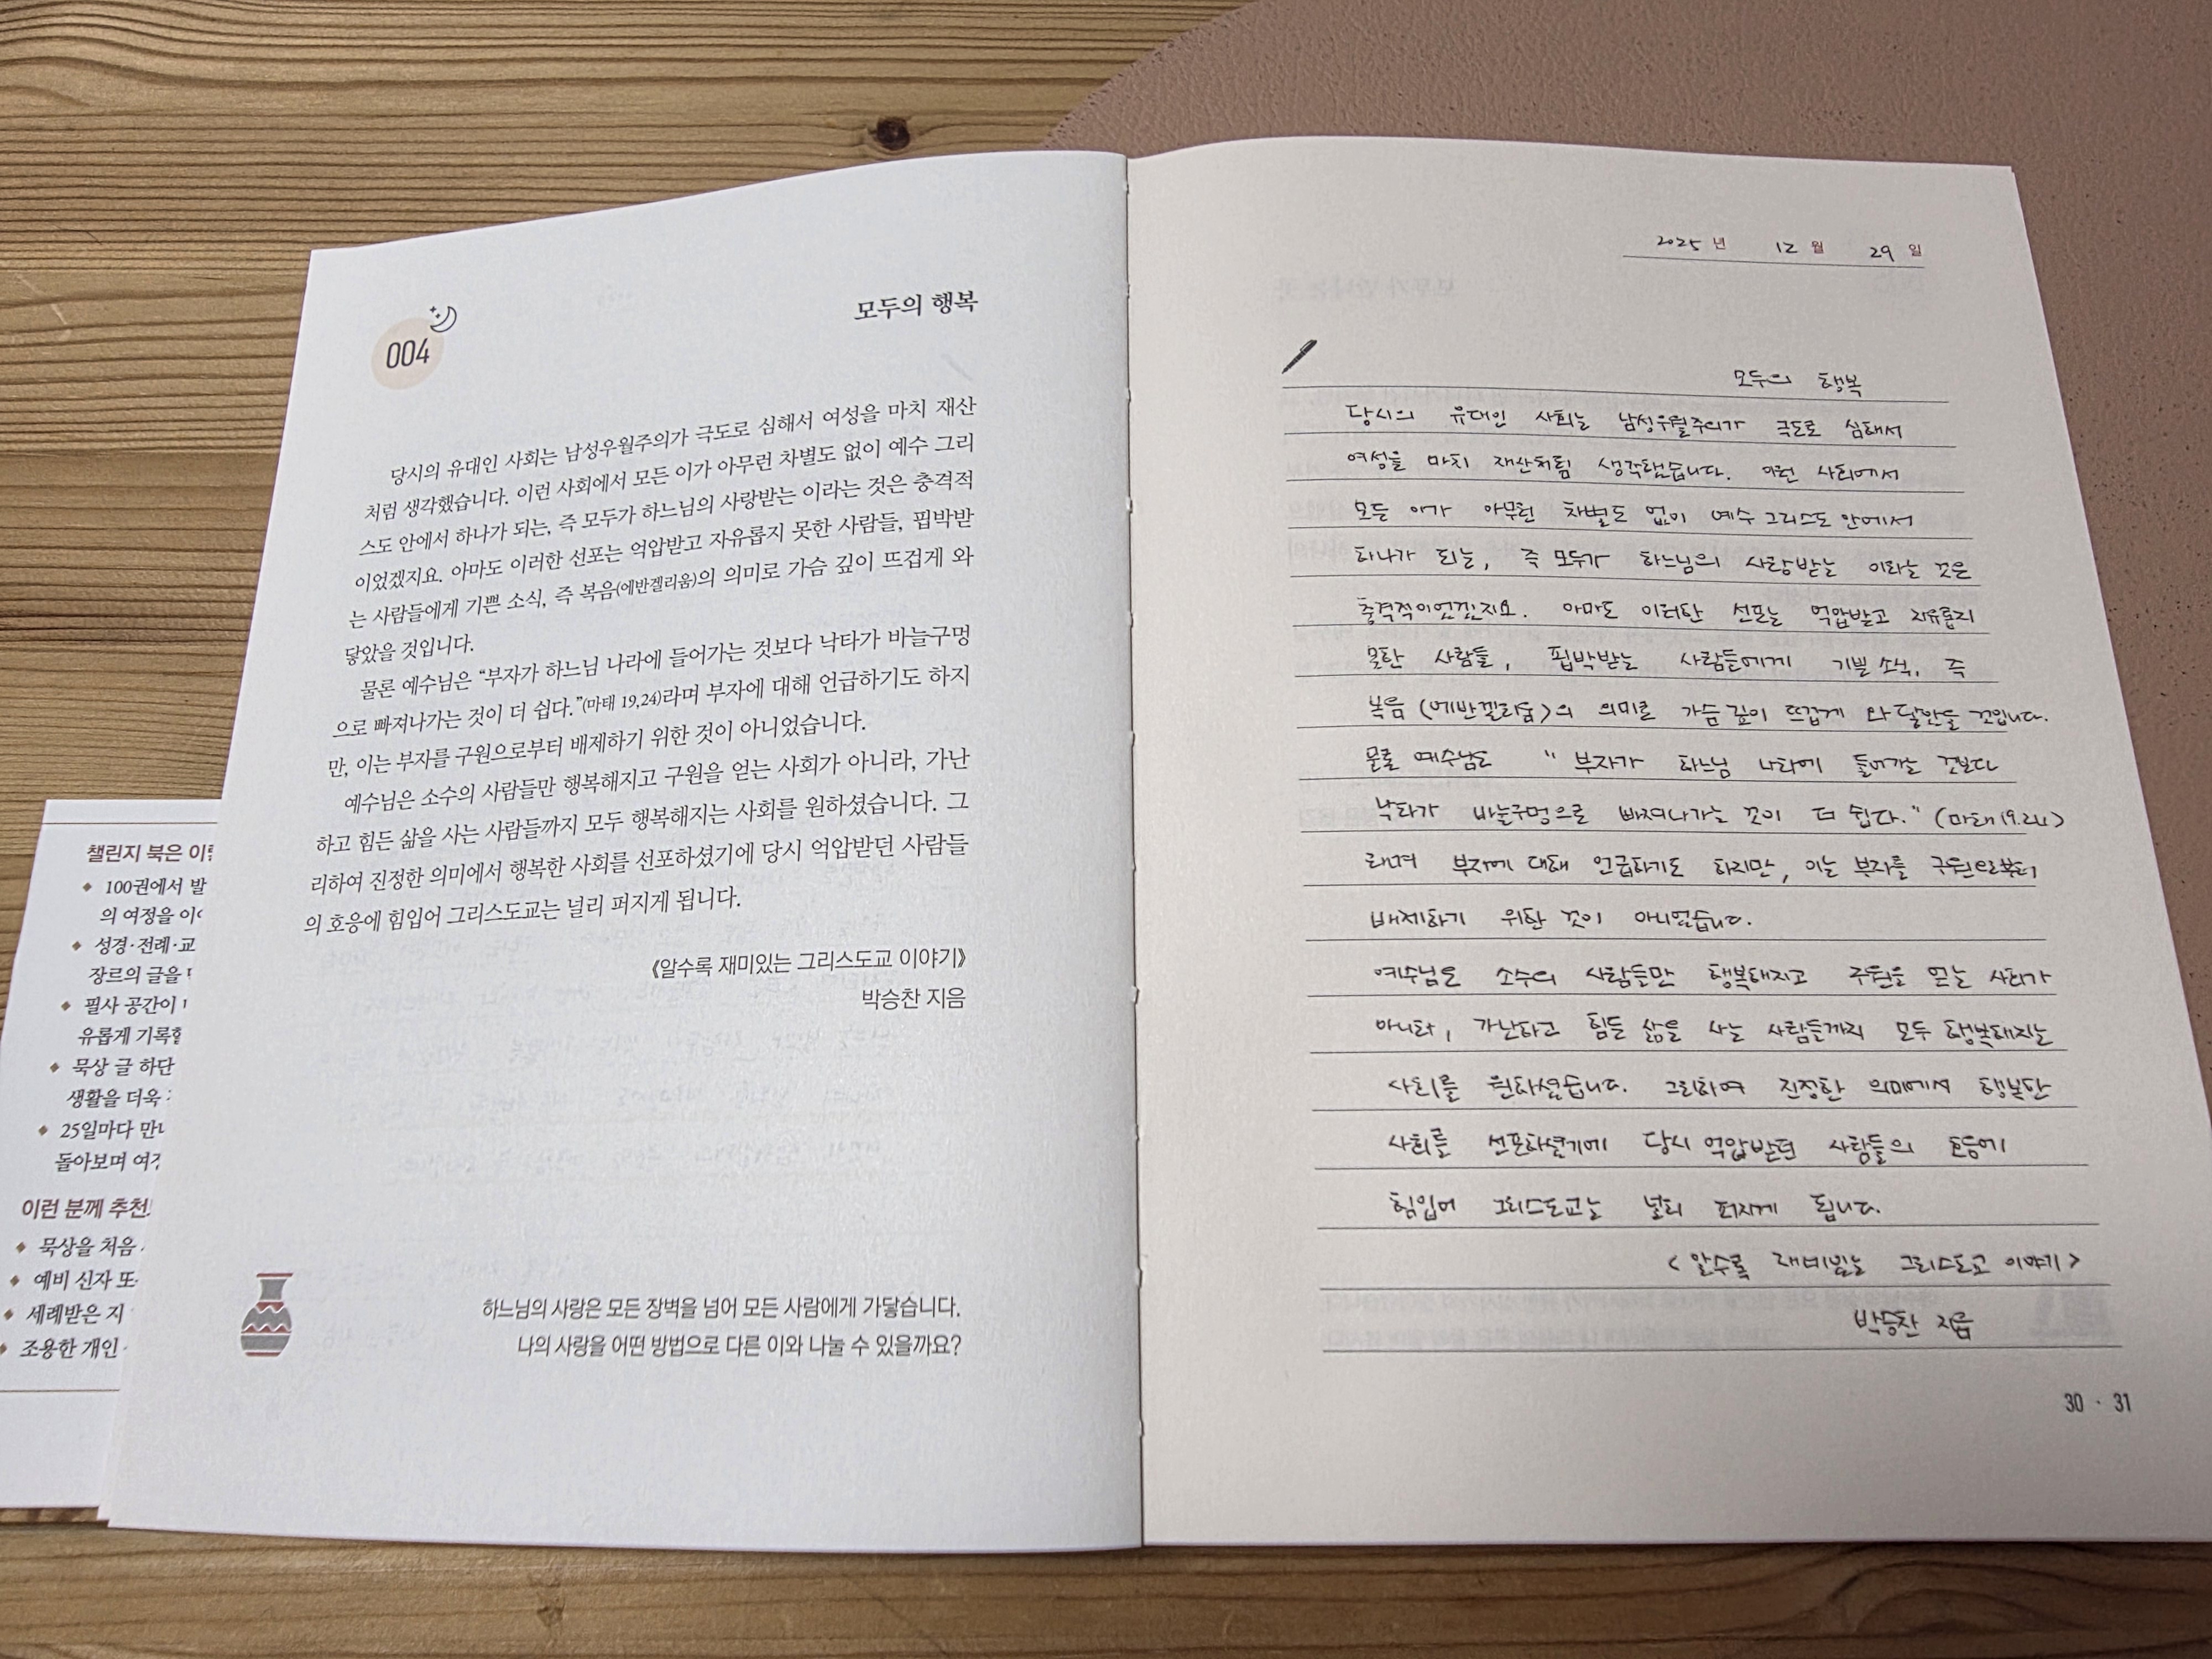 모두의 행복
004
당시의 유대인 사회는 남성우월주의가 극도로 심해서 여성을 마치 재산
처럼 생각했습니다. 이런 사회에서 모든 이가 아무런 차별도 없이 예수 그리
스도 안에서 하나가 되는, 즉 모두가 하느님의 사랑받는 이라는 것은 충격적
이었겠지요. 아마도 이러한 선포는 억압받고 자유롭지 못한 사람들, 핍박받
는 사람들에게 기쁜 소식, 즉 복음(에반겔리움)의 의미로 가슴 깊이 뜨겁게 와
닿았을 것입니다.
물론 예수님은 “부자가 하느님 나라에 들어가는 것보다 낙타가 바늘구멍
으로 빠져나가는 것이 더 쉽다.”(마태 19,24)라며 부자에 대해 언급하기도 하지
만, 이는 부자를 구원으로부터 배제하기 위한 것이 아니었습니다.
예수님은 소수의 사람들만 행복해지고 구원을 얻는 사회가 아니라, 가난
하고 힘든 삶을 사는 사람들까지 모두 행복해지는 사회를 원하셨습니다. 그
리하여 진정한 의미에서 행복한 사회를 선포하셨기에 당시 억압받던 사람들
의 호응에 힘입어 그리스도교는 널리 퍼지게 됩니다.
《알수록 재미있는 그리스도교 이야기》
박승찬 지음
하느님의 사랑은 모든 장벽을 넘어 모든 사람에게 가닿습니다.
나의 사랑을 어떤 방법으로 다른 이와 나눌 수 있을까요?
챌린지 북은
100권에서 발
의 여정을
성경·전례·교
장르의 글을
필사 공간이
유롭게
묵상 글 하단
생활을 더욱
25일마다
돌아보며
이런 분께 추천
묵상을 처음
예비 신자 또
세례받은 지
조용한 개인
2025 년 12 월 29 일
모두의 행복
당시의 유대인 사회는 남성우월주의가 극도로 심해서
여성을 마치 재산처럼 생각했습니다. 이런 사회에서
모든 이가 아무런 차별도 없이 예수 그리스도 안에서
하나가 되는, 즉 모두가 하느님의 사랑받는 이라는 것은
충격적이었겠지요. 아마도 이러한 선포는 억압받고 자유롭지
못한 사람들, 핍박받는 사람들에게 기쁜 소식, 즉
복음 (에반겔리움)의 의미로 가슴 깊이 뜨겁게 와 닿았을 것입니다.
물론 예수님은 “부자가 하느님 나라에 들어가는 것보다
낙타가 바늘구멍으로 빠져나가는 것이 더 쉽다.” (마태 19.24)
라며 부자에 대해 언급하기도 하지만, 이는 부자를 구원으로부터
배제하기 위한 것이 아니었습니다.
예수님은 소수의 사람들만 행복해지고 구원을 얻는 사회가
아니라, 가난하고 힘든 삶을 사는 사람들까지 모두 행복해지는
사회를 원하셨습니다. 그리하여 진정한 의미에서 행복한
사회를 선포하셨기에 당시 억압받던 사람들의 호응에
힘입어 그리스도교는 널리 퍼지게 됩니다.
<알수록 재미있는 그리스도교 이야기>
박승찬 지음
30 · 31